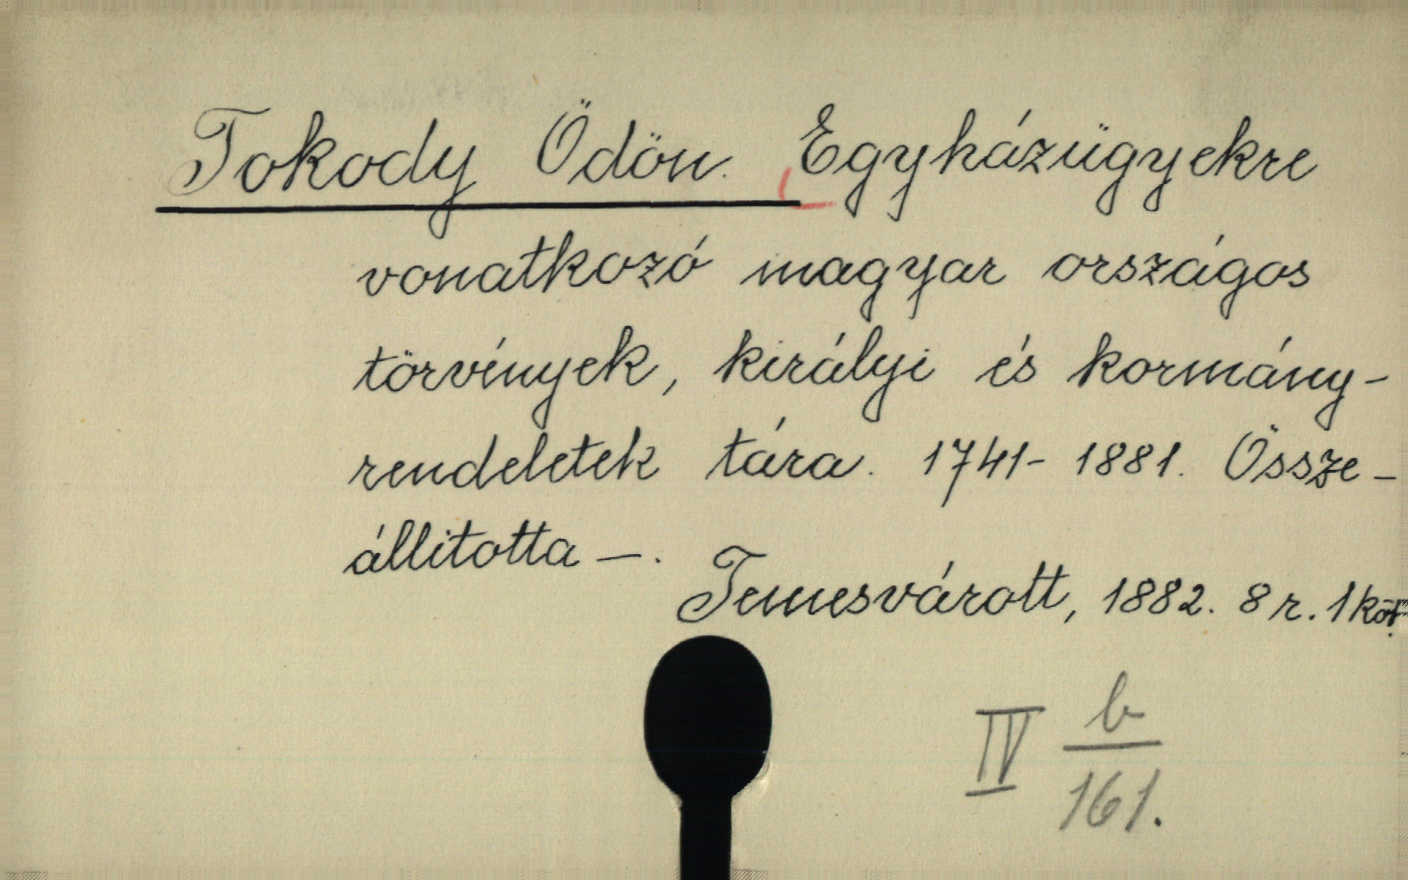 Tokody Ödön. Egyházügyekre
vonatkozó magyar országos
törvények, királyi és kormány-
rendeletek tára. 1741-1881. Össze-
állitotta —.
Temesvárott, 1882. 8 r. 1 köt.
IV b
161.